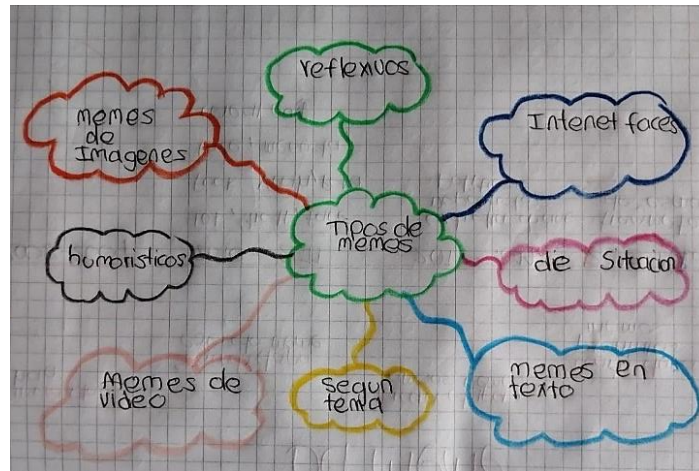 reflexivos
memes
de
Imagenes
Intenet faces
Tipos de
memes
humoristicos
de Situacion
Memes de
video
segun
tema
memes en
texto